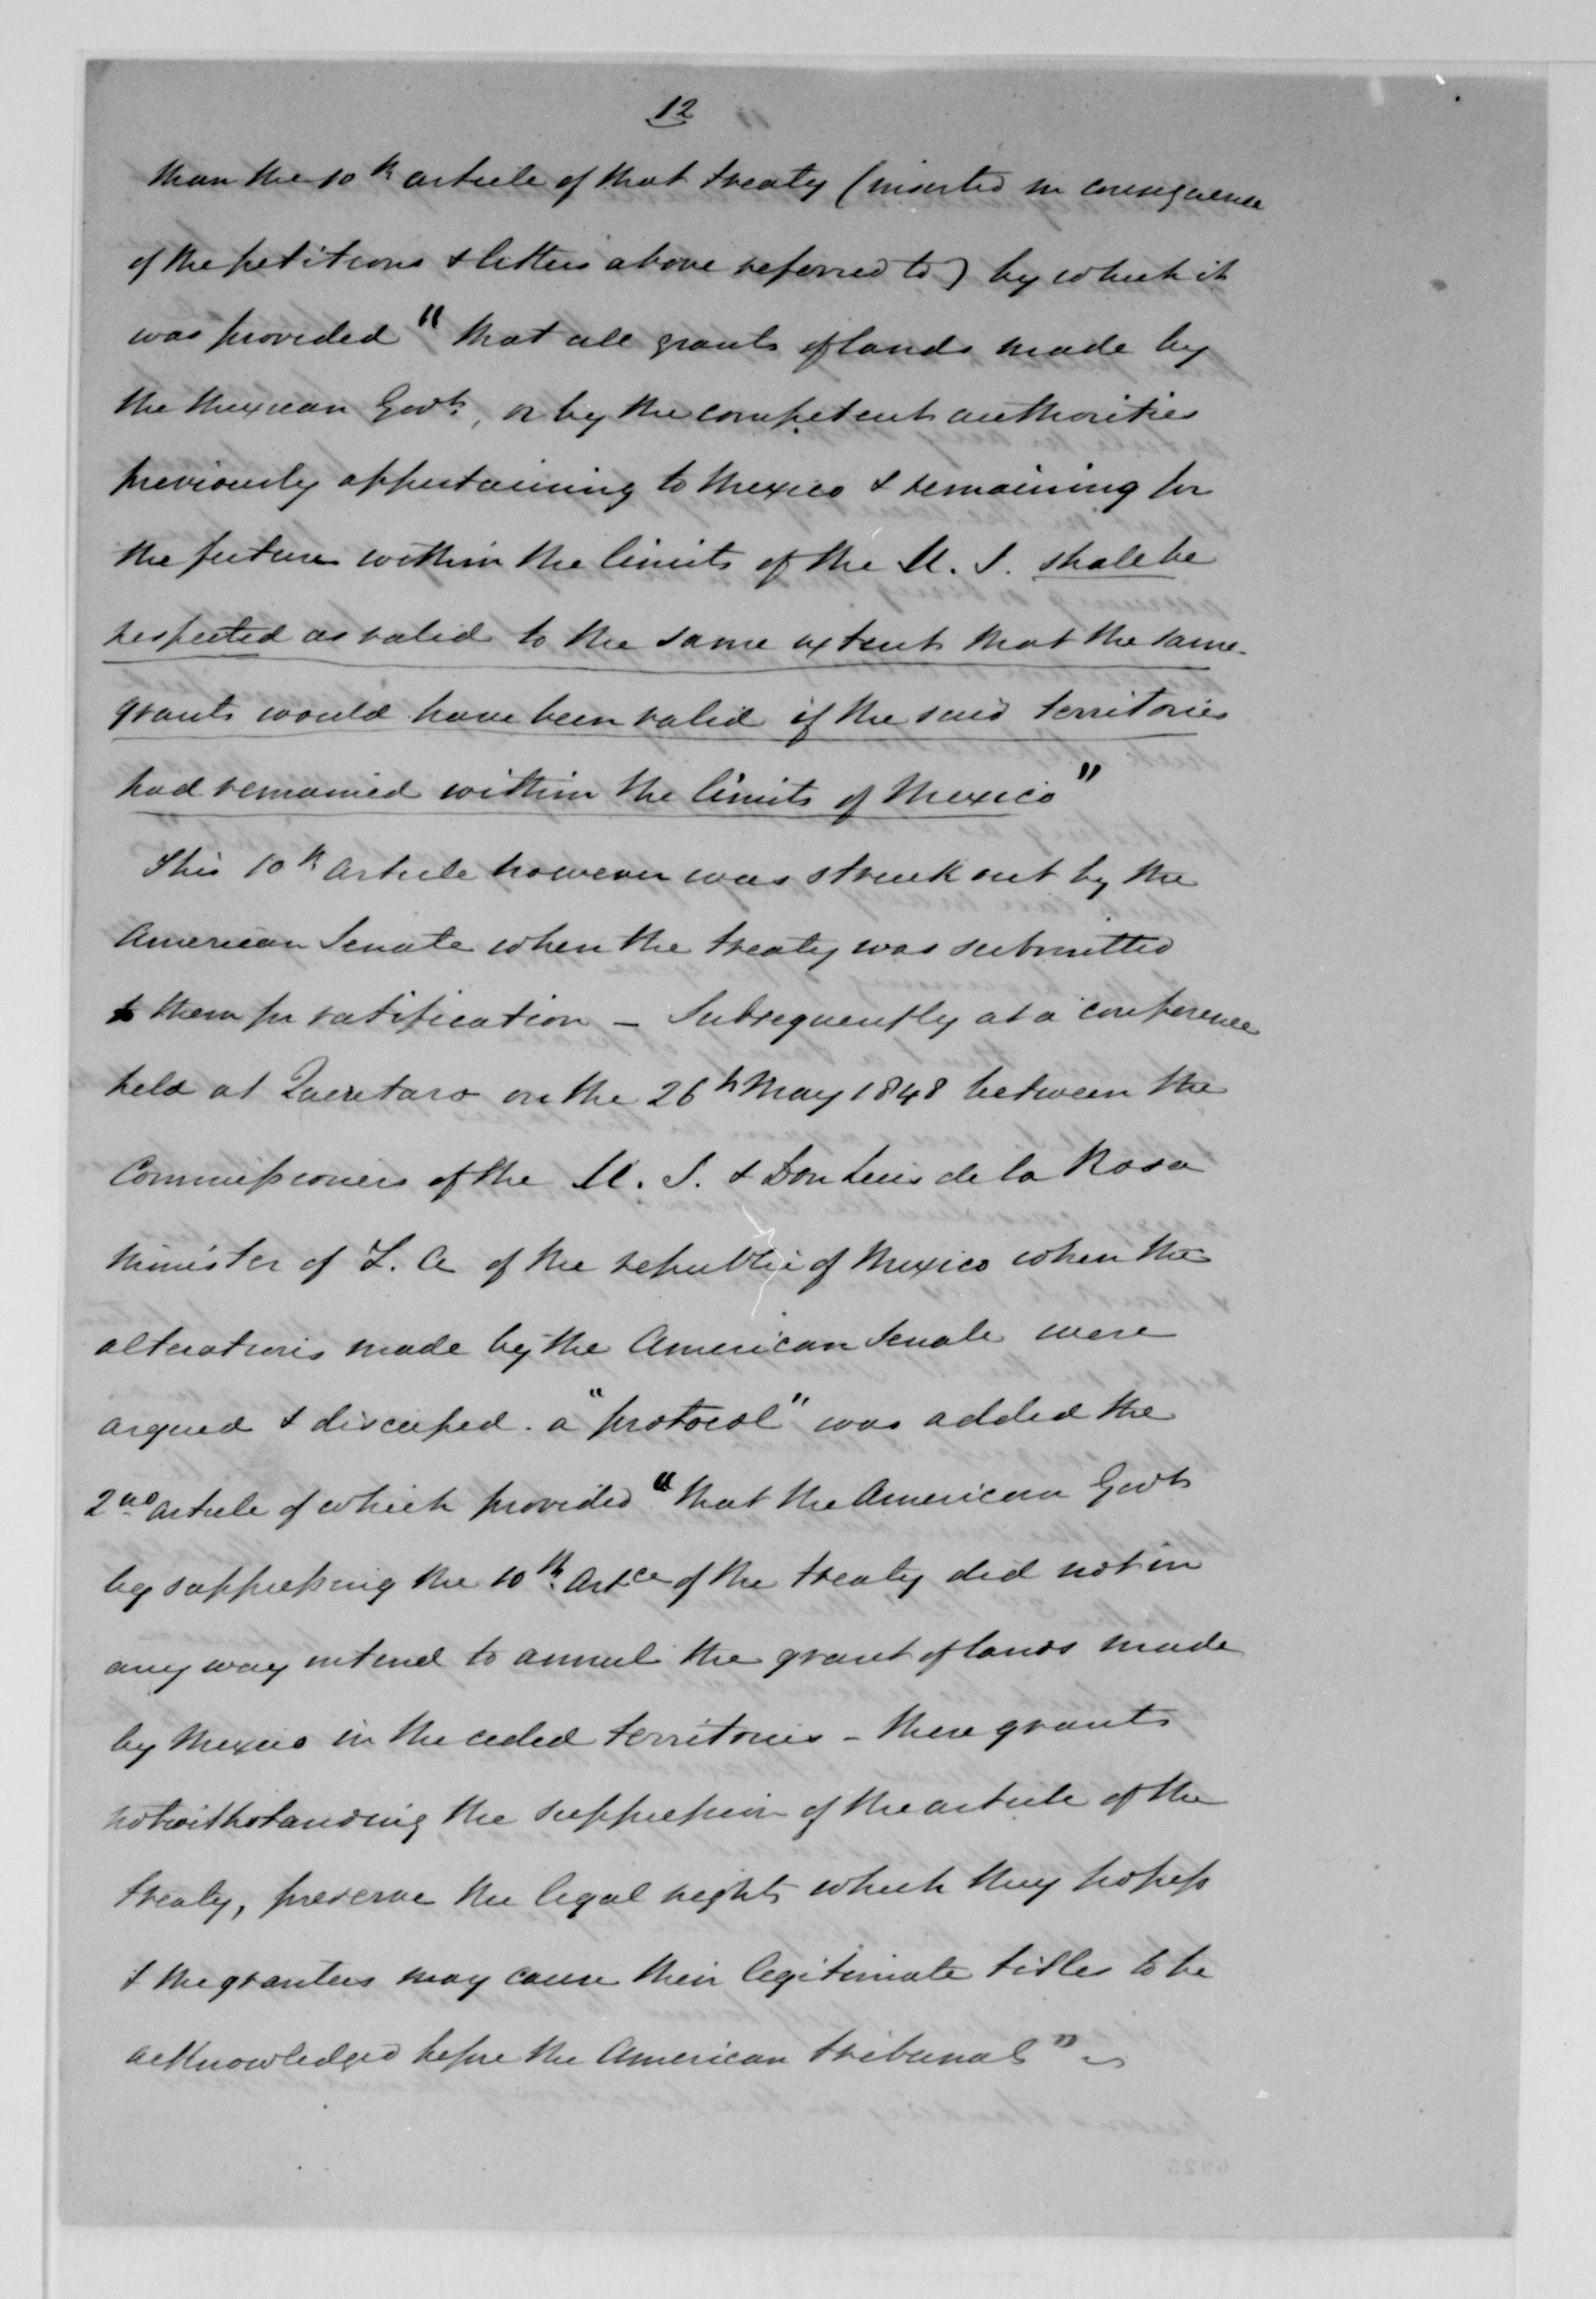 12
than the 10th article of that treaty (inserted in consequence
of the petitions & letters above referred to) by which it
was provided "that all grants of lands made by
the Mexican Govt., or by the competent authorities
previously appertaining to Mexico & remaining for
the future within the limits of the U. S. shall be
respected as valid to the same extent that the same
grants would have been valid if the said territories
had remained within the limits of Mexico"
This 10th Article however was struck out by the
American Senate when the treaty was submitted
to them for ratification – Subsequently at a conference
held at Queretaro on the 26th May 1848 between the
Commissioners of the U. S. & Don Luis de la Rosa
Minister of F. A of the republic of Mexico when the
alterations made by the American Senate were
argued & discussed. a "protocol" was added the
2nd article of which provided "that the American Govt
by suppressing the 10th. Artce of the treaty did not in
any way intend to annul the grant of lands made
by Mexico in the ceded territories – these grants
notwithstanding the suppression of the article of the
treaty, preserve the legal rights which they possess
& the grantees may cause their legitimate titles to be
acknowledged before the American tribunals" –